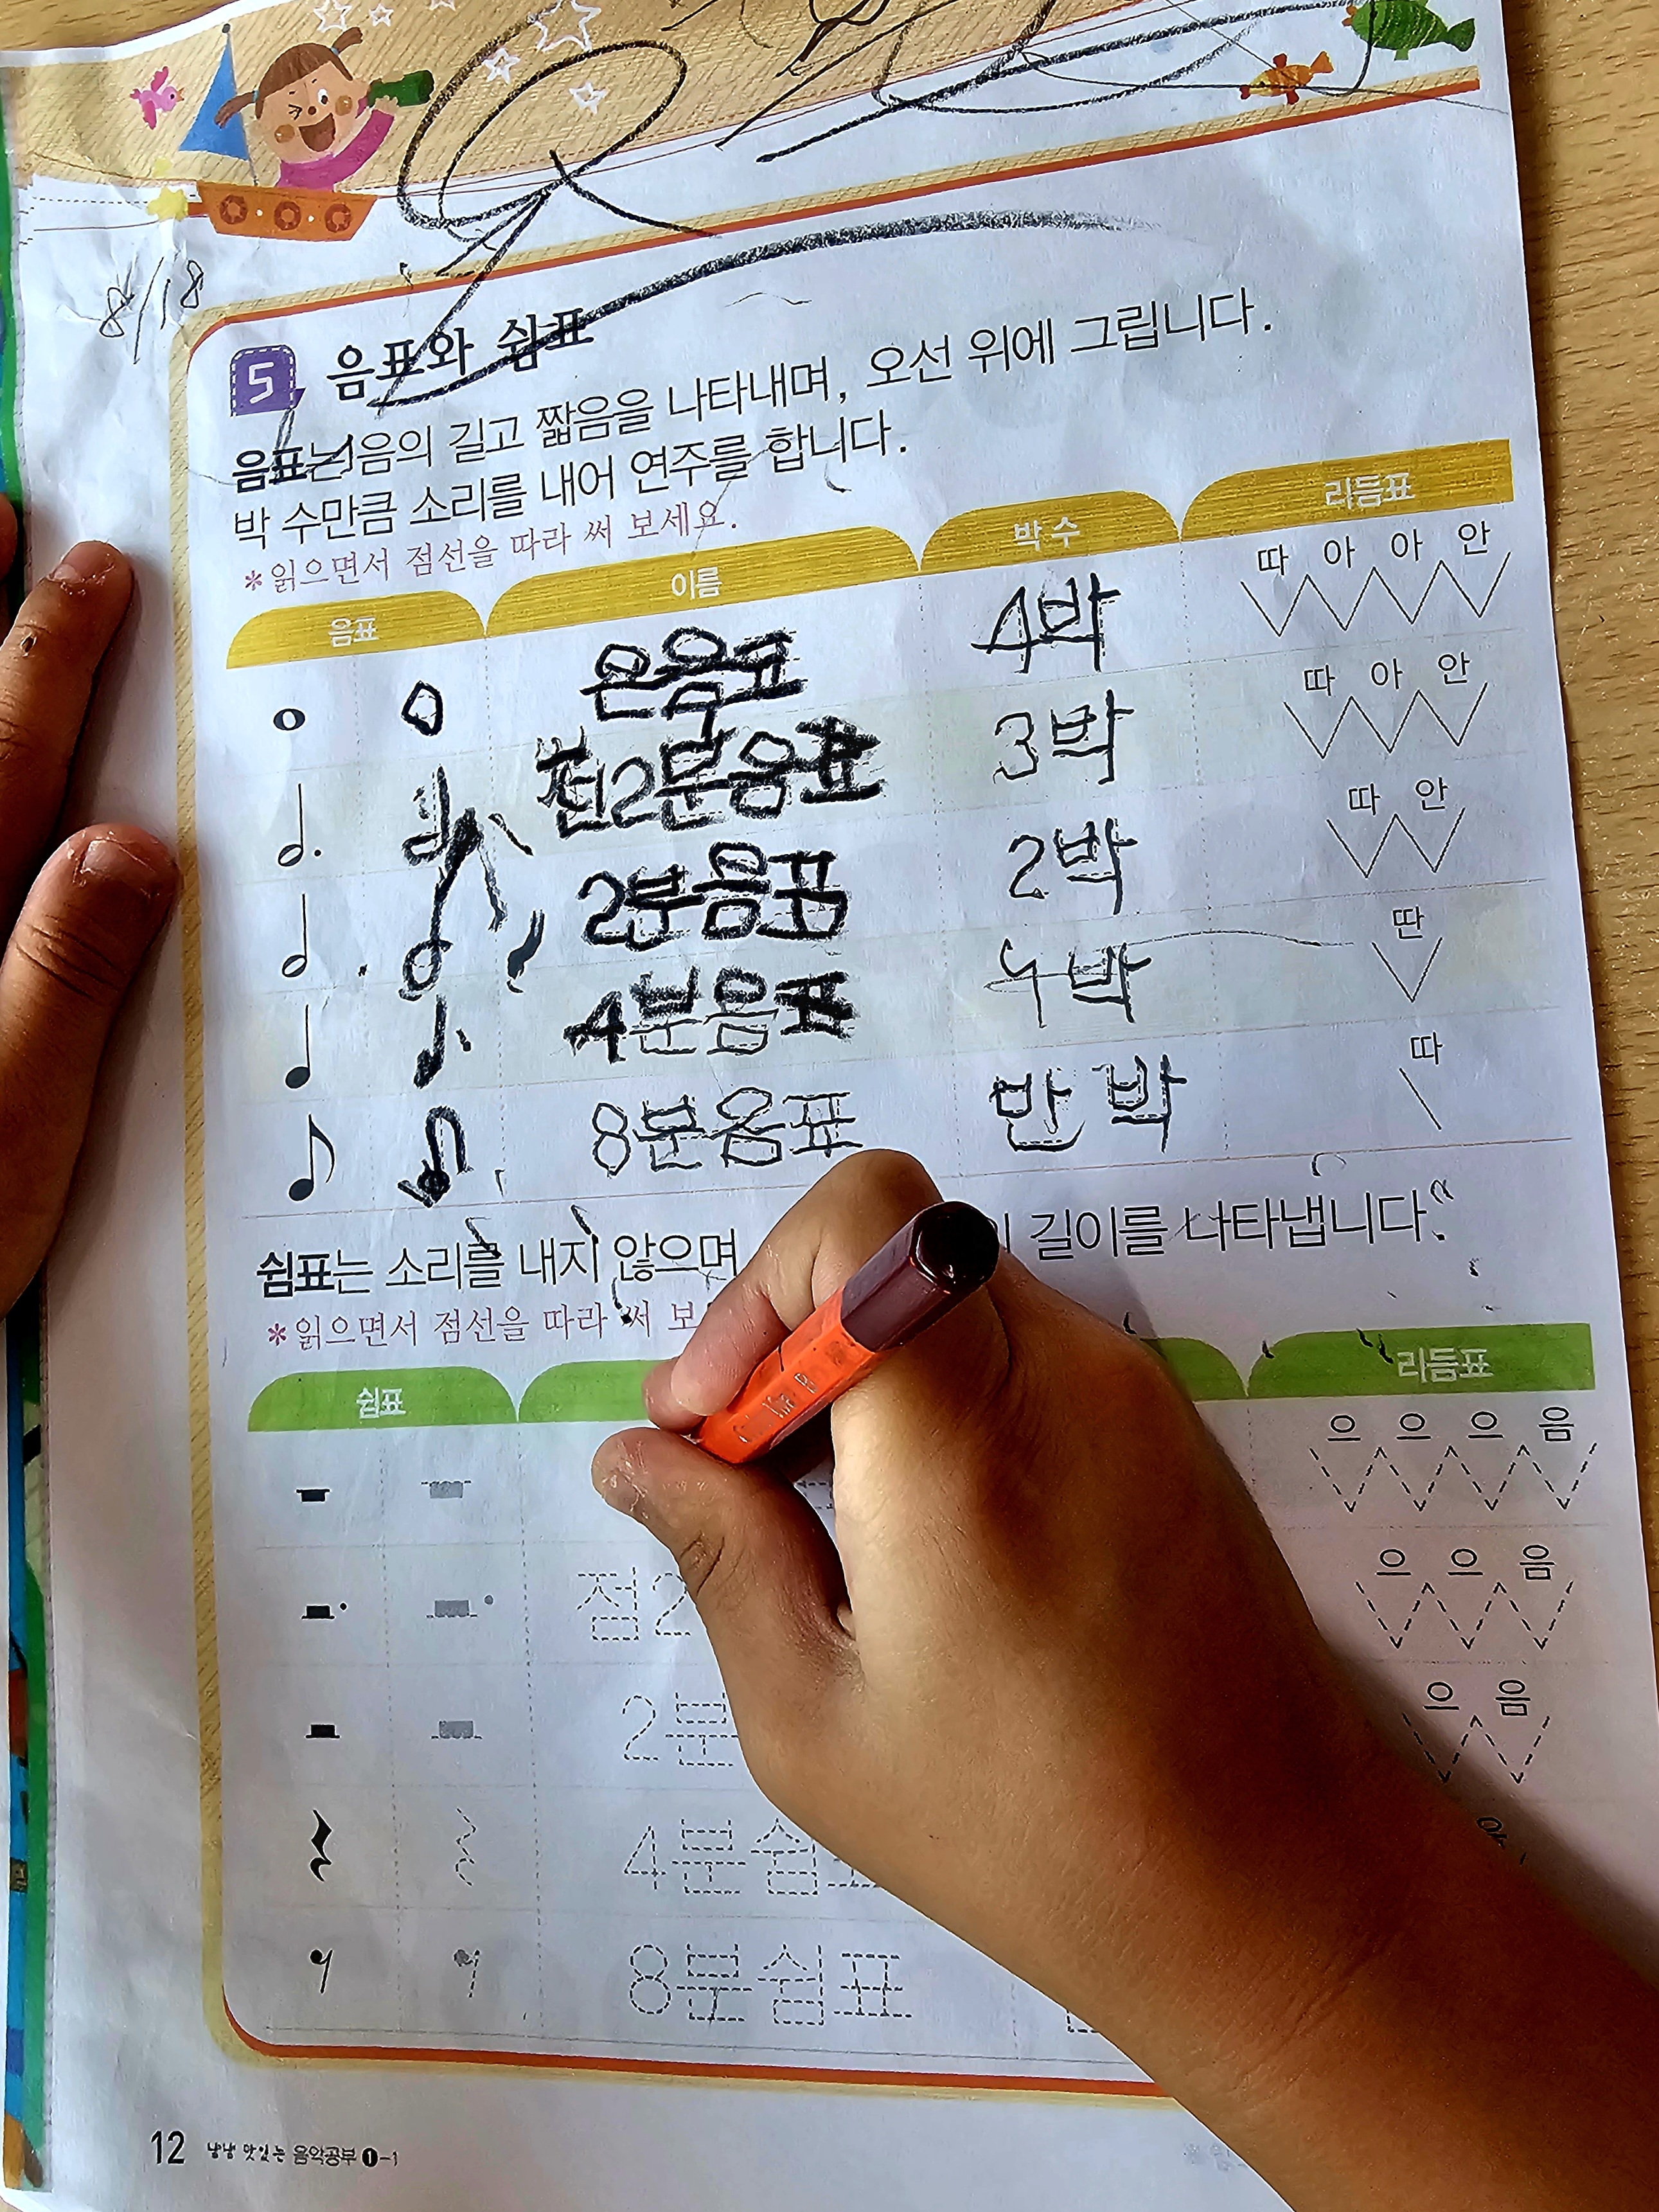 8/18
5 음표와 쉼표
음표는 음의 길고 짧음을 나타내며, 오선 위에 그립니다.
박 수만큼 소리를 내어 연주를 합니다.
*읽으면서 점선을 따라 써 보세요.
음표 이름 박 수 리듬표
온음표 4박 따 아 아 안
점2분음표 3박 따 아 안
2분음표 2박 따 안
4분음표 박 딴
8분음표 반 박 따
쉼표는 소리를 내지 않으며 길이를 나타냅니다.
*읽으면서 점선을 따라 써 보
쉼표 리듬표
으 으 으 음
점2 으 으 음
2분 으 음
4분쉼
8분쉼표
12 냠냠 맛있는 음악공부 1-1